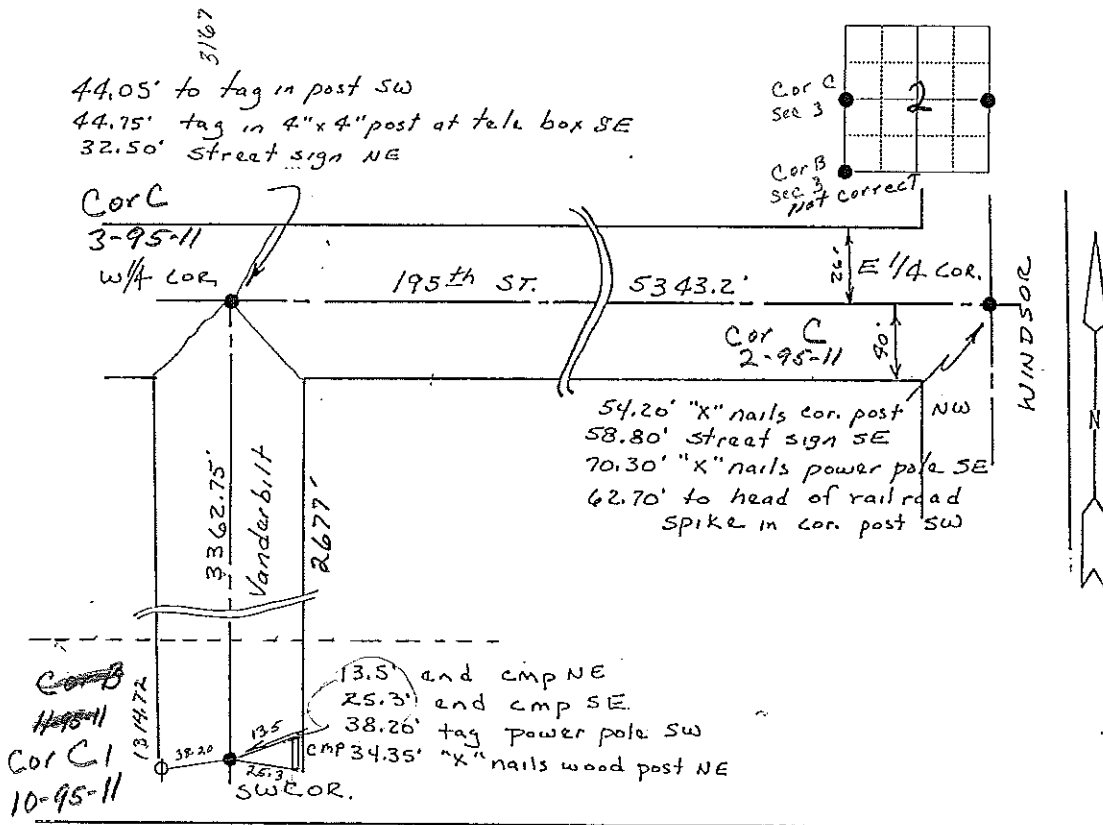 3167
44.05' to tag in post SW
44.75' tag in 4"x4" post at tele box SE
32.50' street sign NE
Cor C
sec 3
2
Cor B
sec 3
not correct
Cor C
3-95-11
W 1/4 COR.
195th ST.
5343.2'
26'
E 1/4 COR.
Cor C
2-95-11
40'
WINDSOR
N
54.20' "X" nails cor. post NW
58.80' street sign SE
70.30' "X" nails power pole SE
62.70' to head of railroad
spike in cor. post SW
3362.75'
Vanderbilt
2677'
Cor B
11-95-11
Cor C1
10-95-11
1314.72
38.20
13.5
25.3
cmp
SW COR.
13.5' end cmp NE
25.3' end cmp SE
38.26' tag power pole SW
34.35' "X" nails wood post NE